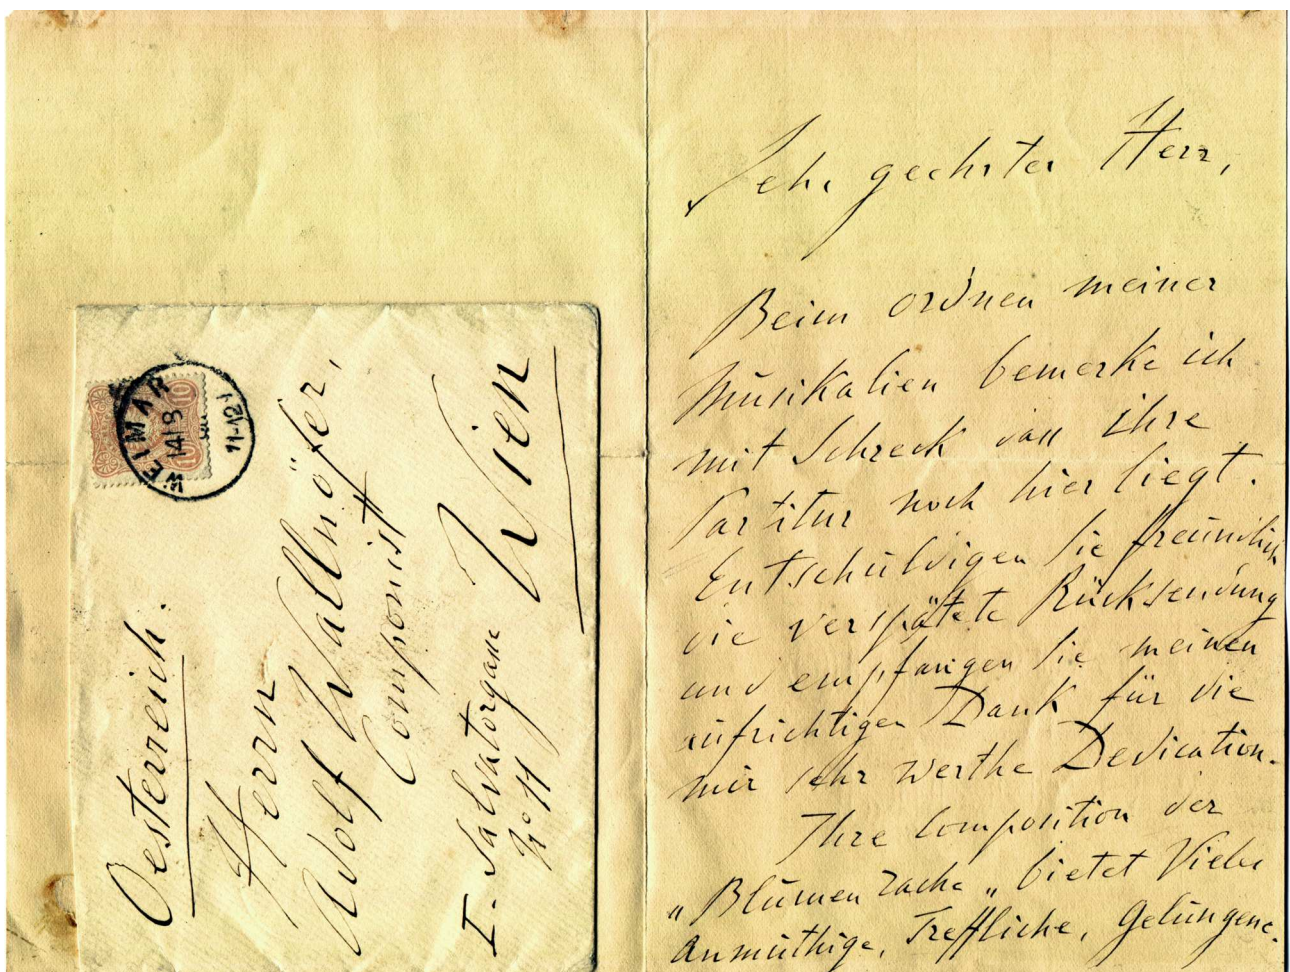 Oesterreich.
Herrn
Adolf Wallnöfer,
Componist
Wien
I. Salvatorgasse
No 11
WEIMAR
14 8
11-12V
10
Sehr geehrter Herr,
Beim ordnen meiner
Musikalien bemerke ich
mit Schreck dass ihre
Partitur noch hier liegt.
Entschuldigen Sie freundlich
die verspätete Rücksendung
und empfangen Sie meinen
aufrichtigen Dank für die
mir sehr werthe Dedication.
Ihre Composition der
"Blumen Rache" bietet Viele
Anmuthige, Treffliche, Gelungene.